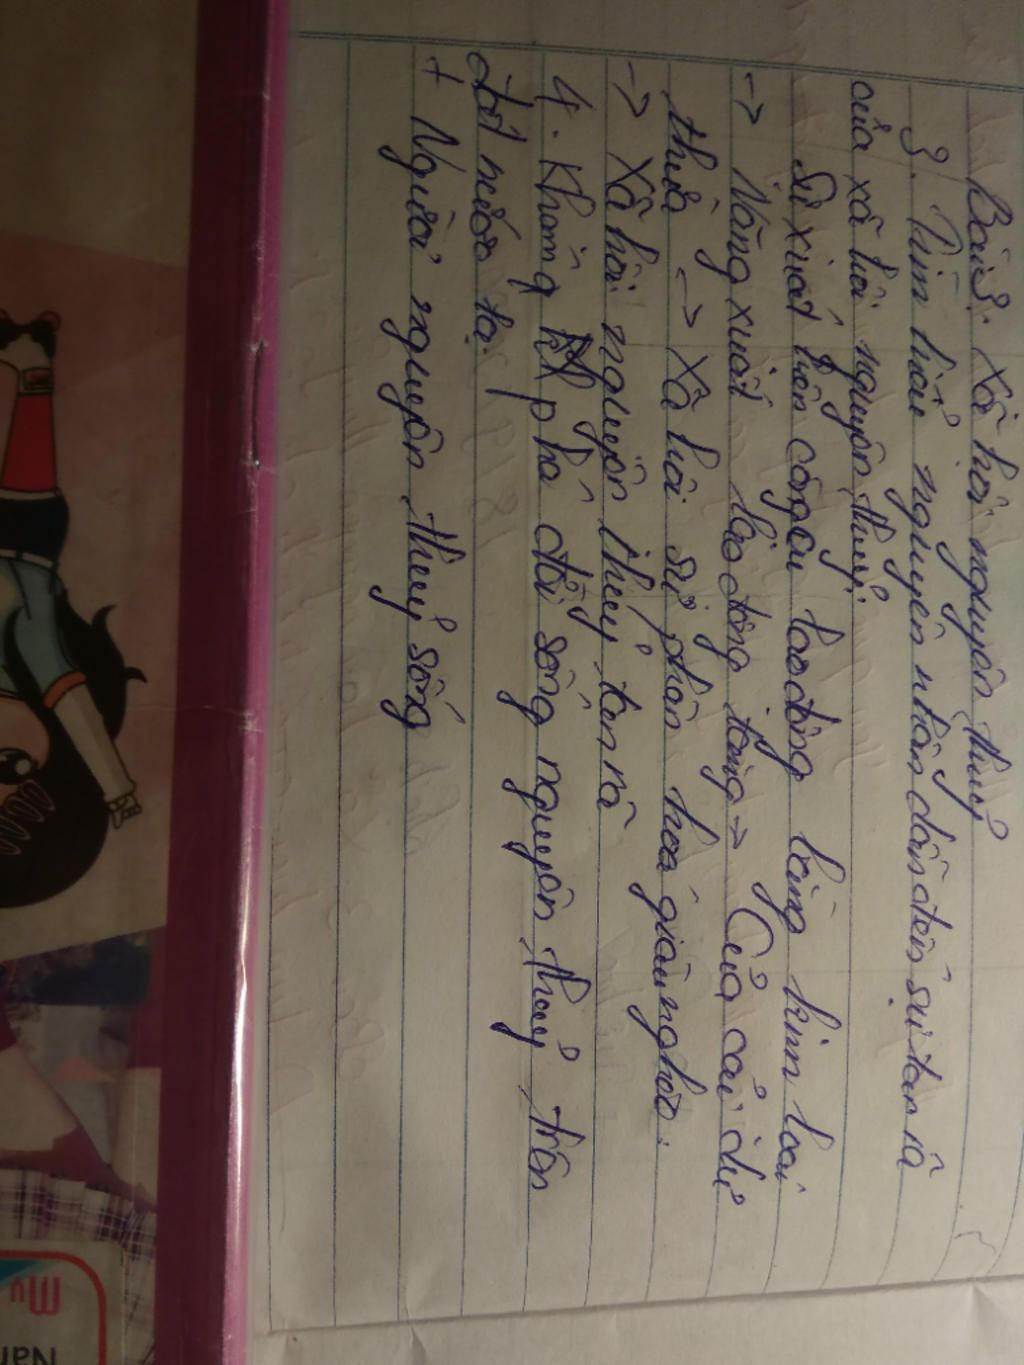 Bài 3. Xã hội nguyên thuỷ
3. Tìm hiểu nguyên nhân dẫn đến sự tan rã
của xã hội nguyên thuỷ.
Sự xuất hiện công cụ lao động bằng kim loại
-> Năng xuất lao động tăng -> Của cải dư
thừa -> Xã hội sự phân hoá giàu nghèo.
-> Xã hội nguyên thuỷ tan rã
4. Không phá đời sống nguyên thuỷ trên
đất nước ta.
+ Người nguyên thuỷ sống
My
Nan